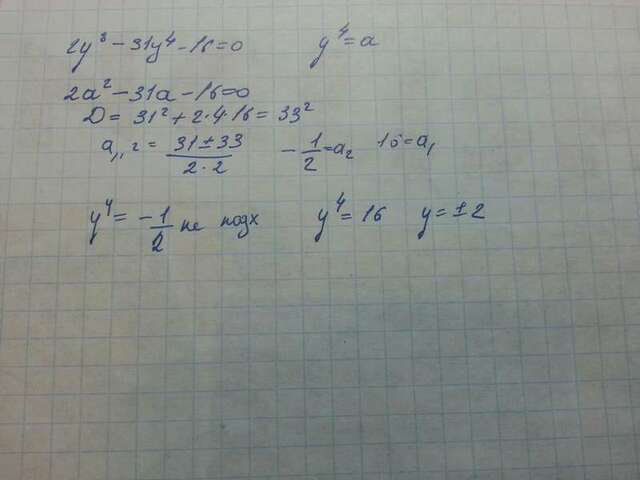 2y⁸ - 31y⁴ - 16 = 0 y⁴ = a
2a² - 31a - 16 = 0
D = 31² + 2·4·16 = 33²
a₁,₂ = (31 ± 33)/(2·2) -1/2 = a₂ 16 = a₁
y⁴ = -1/2 не подх y⁴ = 16 y = ±2